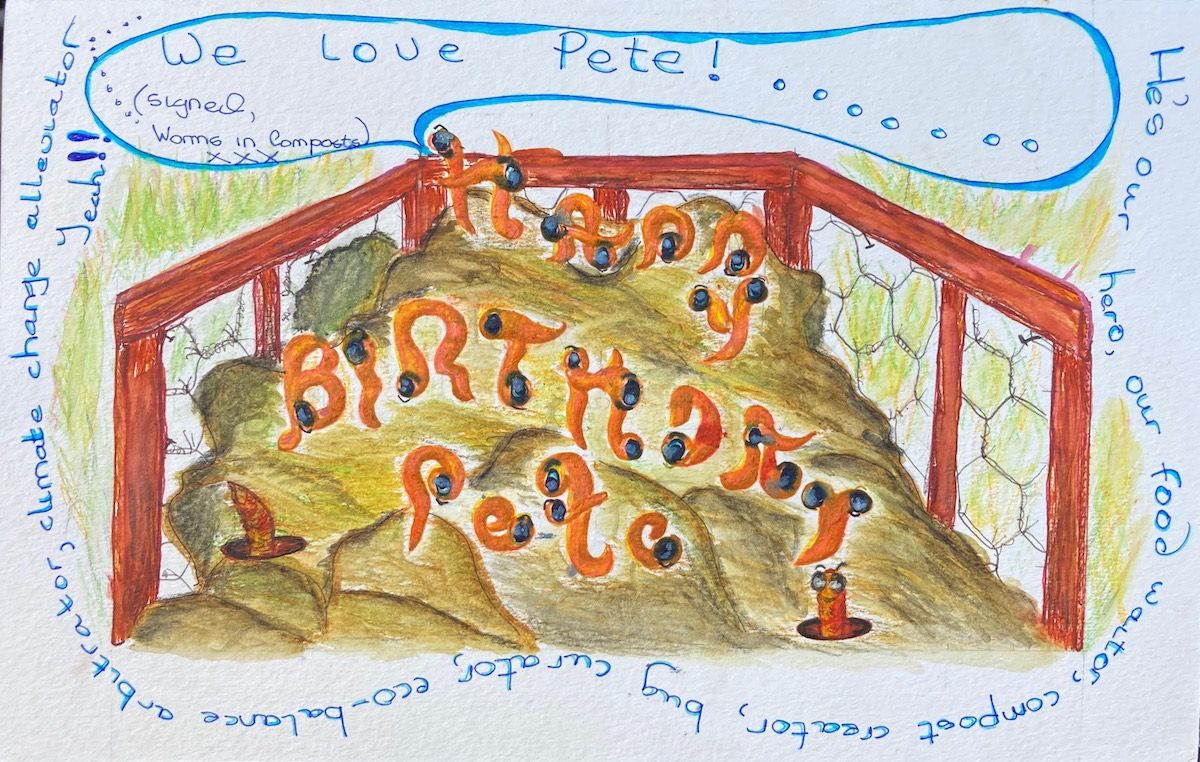 We Love Pete!
(signed,
Worms in Composts)
xxx
HAppy
BiRTHDAY
Pete
He's our hero, our food waitor, compost creator, bug curator, eco-balance arbitrator, climate change allewiator
Yeah!!